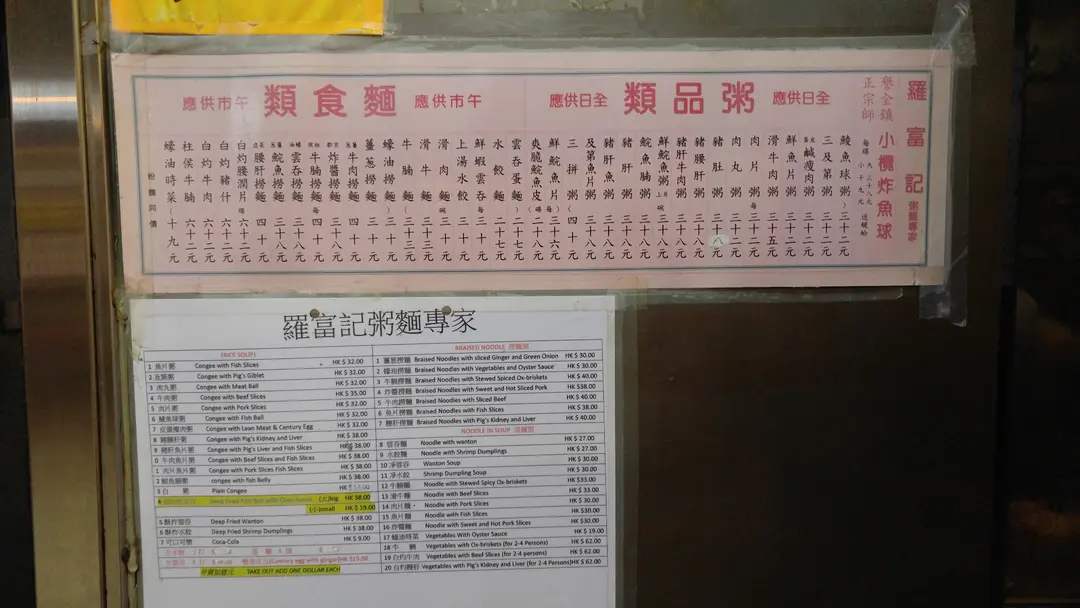 羅富記粥麵專家
譽全鎮
正宗師
小欖炸魚球
全日供應 粥品類 全日供應
午市供應 麵食類 午市供應
鯪魚球粥 三十二元
三及第粥 三十二元
鹹瘦肉粥 三十二元
鮮魚片粥 三十二元
滑牛肉粥 三十五元
肉片粥 三十二元
肉丸粥 三十二元
豬肚粥
豬腰肝粥 三十八元
豬肝牛肉粥 三十八元
鮮鯇魚粥 三十八元
鯇魚腩粥 三十八元
豬肝魚粥 三十八元
及第魚片粥 三十八元
三拼粥 四十元
鮮鯇魚片 三十六元
爽脆鯇魚皮 二十八元
雲吞蛋麵 二十七元
水餃麵 二十七元
鮮蝦雲吞 三十元
上湯水餃 三十元
滑肉麵 三十元
滑牛麵 三十三元
牛腩麵 三十三元
蠔油撈麵 三十元
薑葱撈麵 三十元
牛肉撈麵 四十元
炸醬撈麵 三十八元
牛腩撈麵 四十元
雲吞撈麵 三十八元
鯇魚撈麵 三十八元
腰肝撈麵 四十元
白灼腰潤片 六十二元
白灼豬什 六十二元
白灼牛肉 六十二元
柱侯牛腩 六十二元
蠔油時菜 十九元
粉麵同價
羅富記粥麵專家
(RICE SOUP)
1 魚片粥 Congee with Fish Slices HK $ 32.00
2 及第粥 Congee with Pig's Giblet HK $ 32.00
3 肉丸粥 Congee with Meat Ball HK $ 32.00
4 牛肉粥 Congee with Beef Slices HK $ 35.00
5 肉片粥 Congee with Pork Slices HK $ 32.00
6 鯪魚球粥 Congee with Fish Ball HK $ 32.00
7 皮蛋瘦肉粥 Congee with Lean Meat & Century Egg HK $ 32.00
8 豬腰肝粥 Congee with Pig's Kidney and Liver HK $ 38.00
9 豬肝魚片粥 Congee with Pig's Liver and Fish Slices HK $ 38.00
0 牛肉魚片粥 Congee with Beef Slices and Fish Slices HK $ 38.00
1 肉片魚片粥 Congee with Pork Slices Fish Slices HK $ 38.00
2 鯇魚腩粥 congee with fish Belly HK $ 38.00
3 白粥 Plain Congee HK $
4 Deep Fried Fish Ball with Clam Sauce (大)big HK $ 38.00
(小)small) HK $ 19.00
5 酥炸雲吞 Deep Fried Wanton HK $ 38.00
6 酥炸水餃 Deep Fried Shrimp Dumplings HK $ 38.00
7 可口可樂 Coca-Cola HK $ 9.00
(Century egg with ginger)HK $15.00
TAKE OUT ADD ONE DOLLAR EACH
BRAISED NOODLE 撈麵類
1 薑葱撈麵 Braised Noodles with sliced Ginger and Green Onion HK $ 30.00
2 蠔油撈麵 Braised Noodles with Vegetables and Oyster Sauce HK $ 30.00
3 牛腩撈麵 Braised Noodles with Stewed Spiced Ox-briskets HK $ 40.00
4 炸醬撈麵 Braised Noodles with Sweet and Hot Sliced Pork HK $38.00
5 牛肉撈麵 Braised Noodles with Sliced Beef HK $ 40.00
6 魚片撈麵 Braised Noodles with Fish Slices HK $ 38.00
7 腰肝撈麵 Braised Noodles with Pig's Kidney and Liver HK $ 40.00
NOODLE IN SOUP 湯麵類
8 雲吞麵 Noodle with wanton HK $ 27.00
9 水餃麵 Noodle with Shrimp Dumplings HK $ 27.00
10 淨雲吞 Wanton Soup HK $ 30.00
11 淨水餃 Shrimp Dumpling Soup HK $ 30.00
12 牛腩麵 Noodle with Stewed Spicy Ox-briskets HK $33.00
13 滑牛麵 Noodle with Beef Slices HK $ 33.00
14 肉片麵 Noodle with Pork Slices HK $30.00
15 魚片麵 Noodle with Fish Slices HK $30.00
16 炸醬麵 Noodle with Sweet and Hot Pork Slices HK $30.00
17 蠔油時菜 Vegetables With Oyster Sauce HK $ 19.00
18 牛腩 Vegetables with Ox-briskets (for 2-4 Persons) HK $ 62.00
19 白灼牛肉 Vegetables with Beef Slices (for 2-4 persons) HK $ 62.00
20 白灼腰肝 Vegetables with Pig's Kidney and Liver (for 2-4 Persons) HK $ 62.00